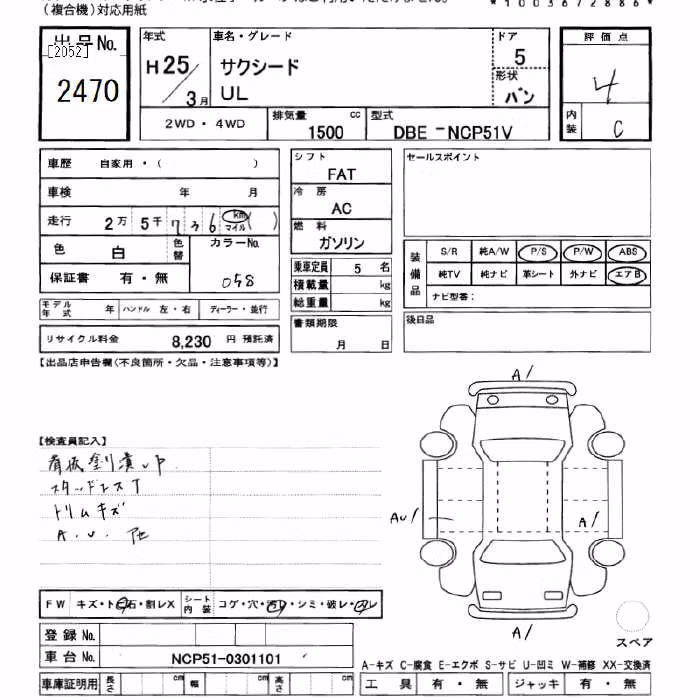 (複合機)対応用紙
*10036728​86*
出品No.
[2052]
2470
年式
H25/3月
車名・グレード
サクシード
UL
ドア
5
形状
バン
評価点
4
内装
C
2WD・4WD
排気量
1500
cc
型式
DBE -NCP51V
車歴 自家用・( )
車検 年 月
走行 2万 5千 7 3 6 km マイル ( )
色 白 色替 カラーNo. 058
保証書 有・無
モデル年式 年 ハンドル 左・右 ディーラー・並行
リサイクル料金 8,230 円 預託済
シフト
FAT
冷房
AC
燃料
ガソリン
乗車定員 5 名
積載量 kg
総重量 kg
書類期限
月 日
セールスポイント
装備品
S/R 純A/W P/S P/W ABS
純TV 純ナビ 革シート 外ナビ エアB
ナビ型番:
後日品
【出品店申告欄(不良箇所・欠品・注意事項等)】
【検査員記入】
スタッドレスT
トリムキズ
A.U.他
A/
AU/
A/
A/
スペア
FW キズ・ト石・割レX シート内装 コゲ・穴・汚レ・シミ・破レ・スレ
登録No.
車台No. NCP51-0301101
A-キズ C-腐食 E-エクボ S-サビ U-凹ミ W-補修 XX-交換済
車庫証明用 長さ cm 幅 cm 高さ cm
工具 有・無 ジャッキ 有・無